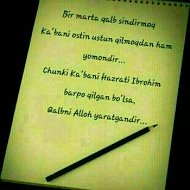 Bir marta qalb sindirmoq
Ka'bani ostin ustun qilmoqdan ham
yomondir...
Chunki Ka'bani Hazrati Ibrohim
barpo qilgan bo'lsa,
Qalbni Alloh yaratgandir...